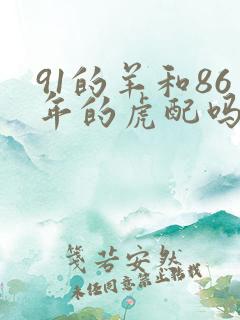 91的羊和86
年的虎配吗
笺若安然
未经同意禁止转载